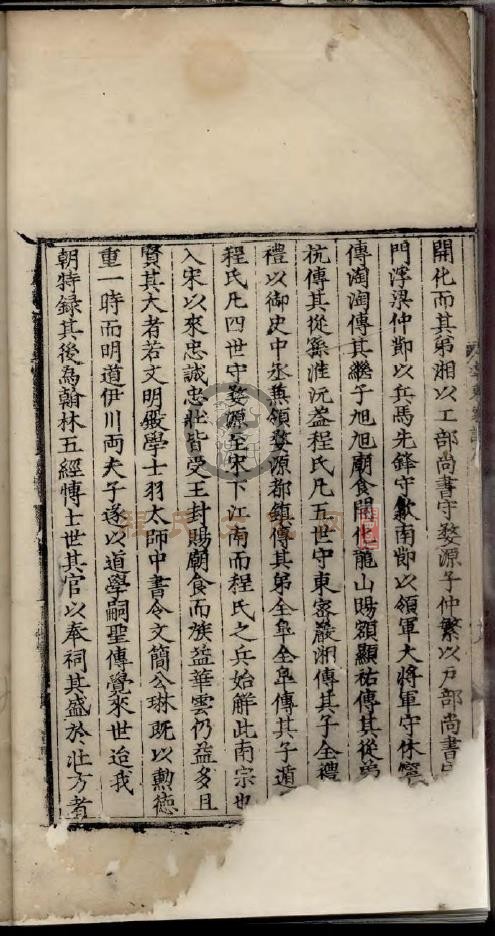 開化而其第湘以工部尚書守婺源子仲繁以戶部尚書
門浮梁仲節以兵馬先鋒守歙南節以領軍大將軍守休寧
傳淘淘傳其繼子旭旭廟食開化龍山賜額顯祐傳其從弟
杭傳其從孫淮沅葢程氏凡五世守東密巖湘傳其子全禮
禮以御史中丞兼領婺源都鎮傳其弟全皐全皐傳其子遁
程氏凡四世守婺源至宋下江南而程氏之兵始解此南宗也
入宋以來忠誠忠壯皆受王封賜廟食而族益華雲仍益多且
賢其大者若文明殿學士羽太師中書令文簡公琳既以勳德
重一時而明道伊川両夫子遂以道學嗣聖傳覺來世迨我
朝特録其後為翰林五經愽士世其官以奉祠其盛於北方者